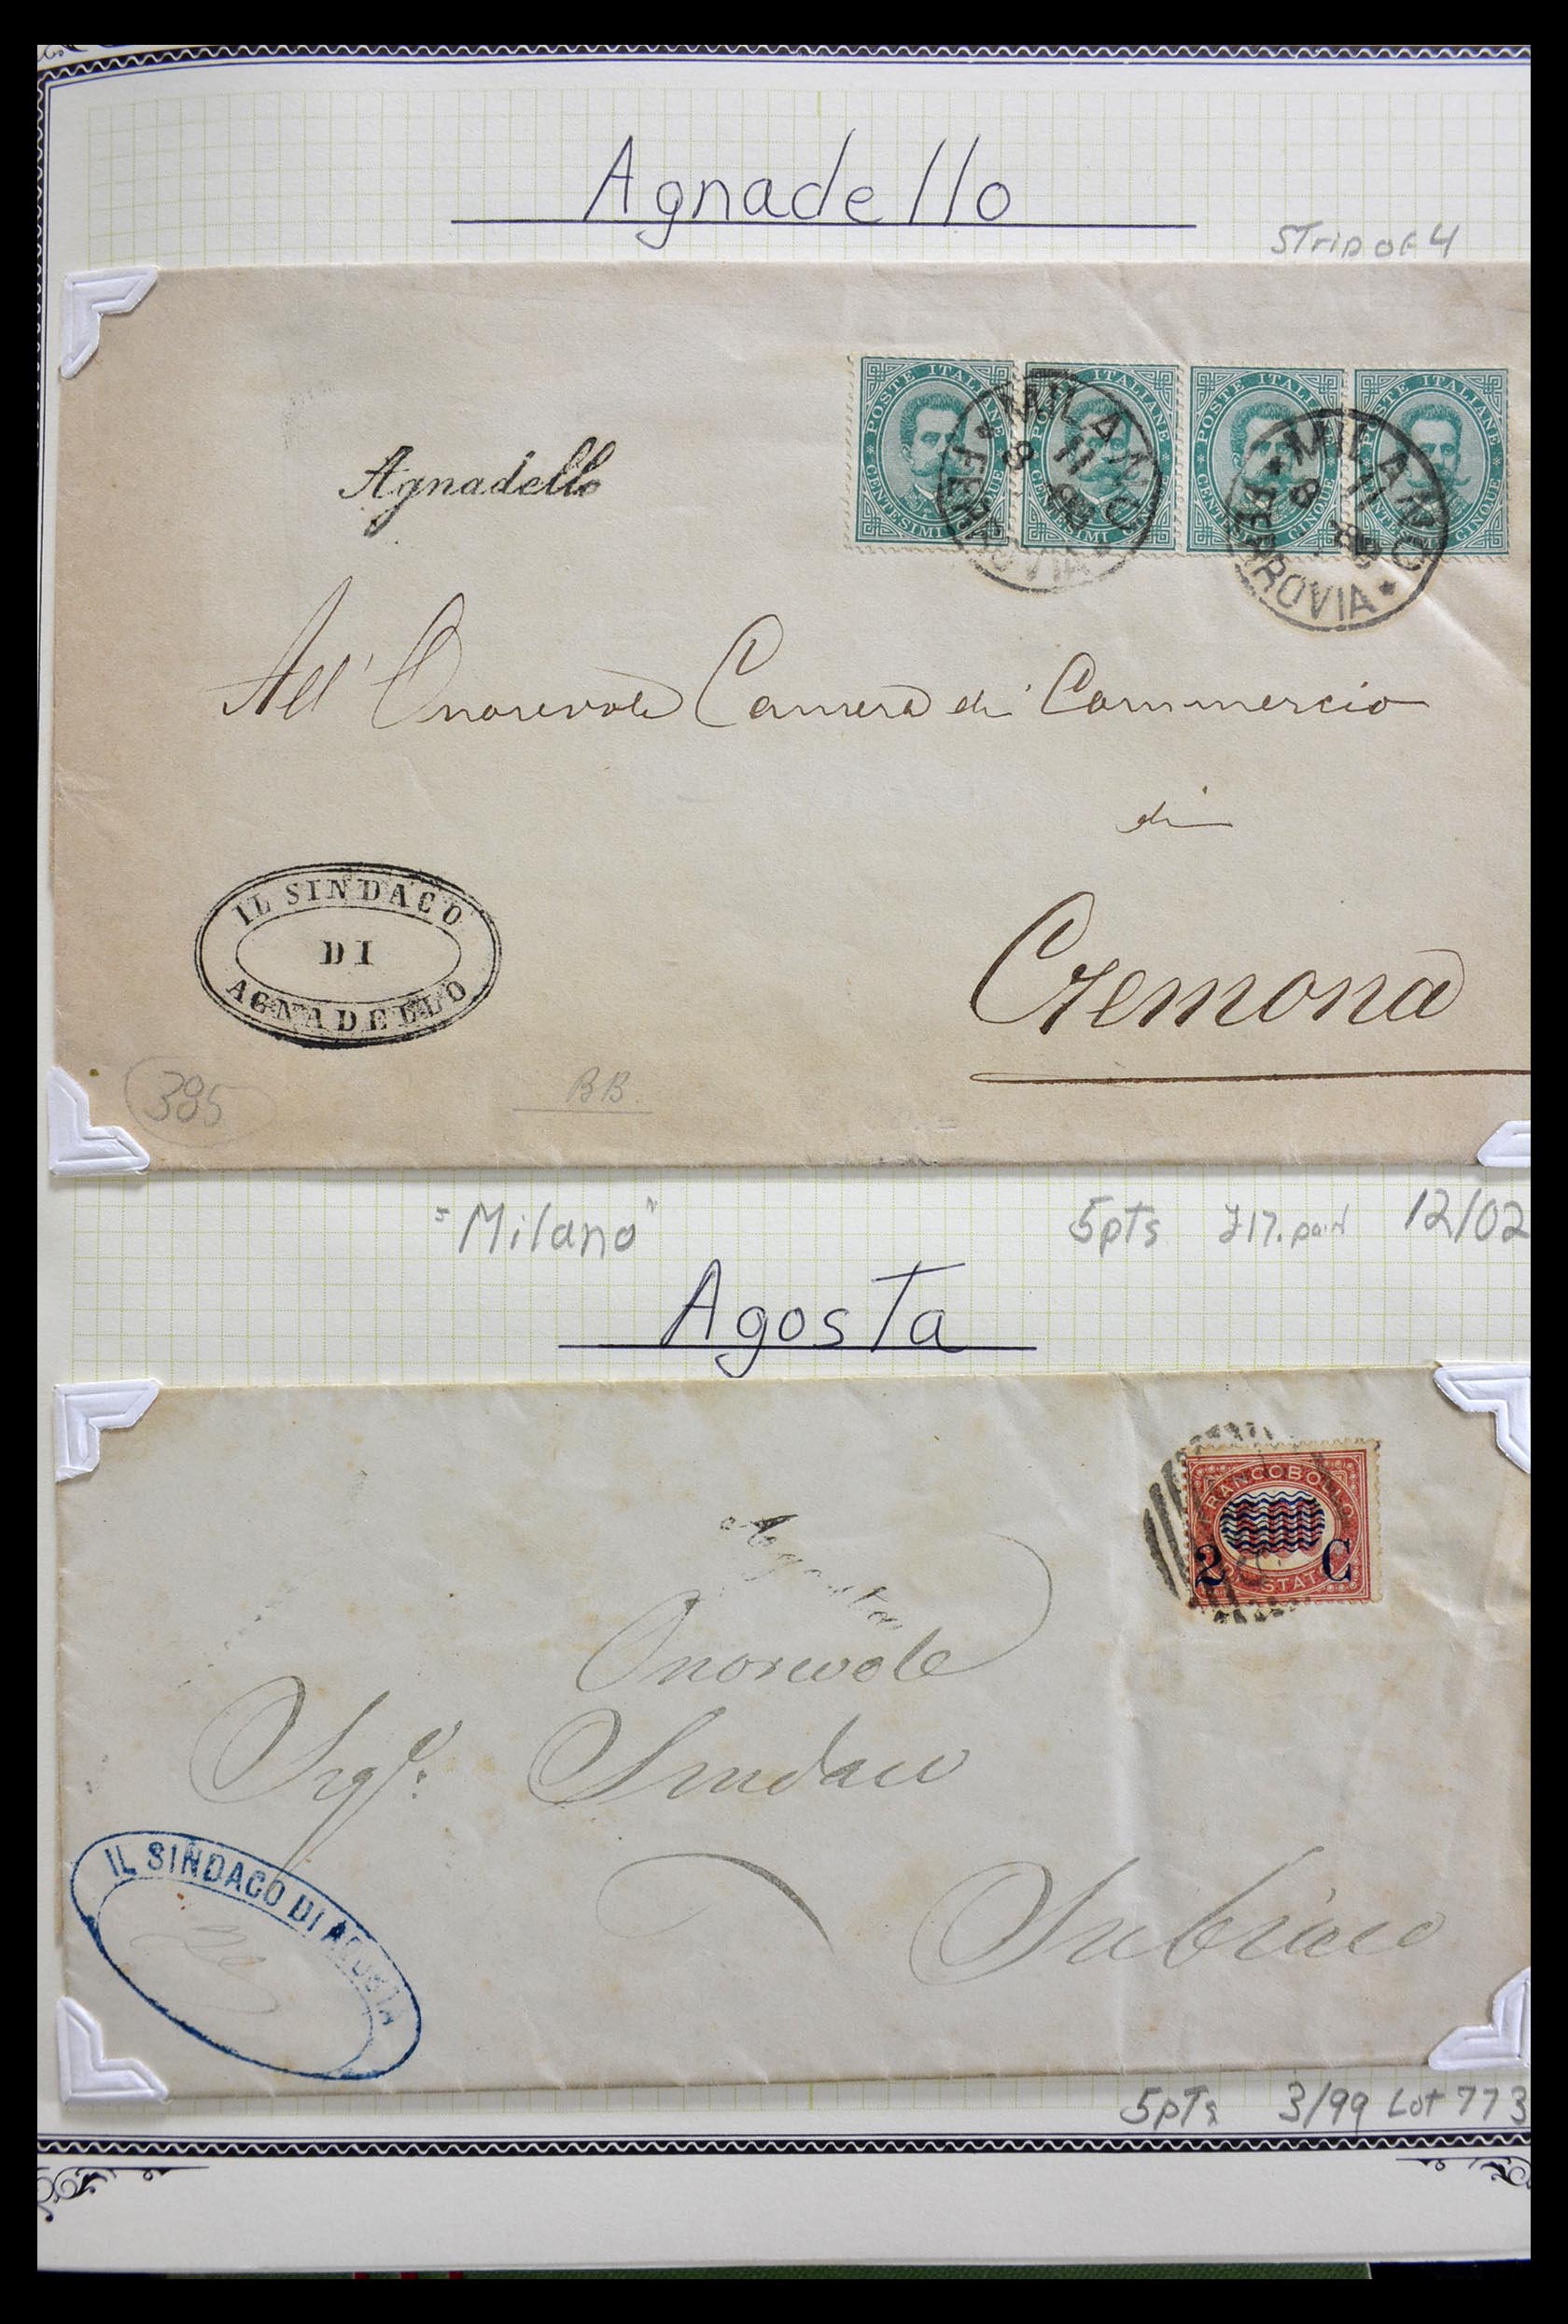 Agnadello
STrip of 4
POSTE ITALIANE
CENTESIMI CINQUE
POSTE ITALIANE
CENTESIMI CINQUE
POSTE ITALIANE
CENTESIMI CINQUE
POSTE ITALIANE
CENTESIMI CINQUE
MILANO
8 11
FERROVIA
MILANO
8 11
FERROVIA
Agnadello
All' Onorevole Camera di Commercio
di
Cremona
IL SINDACO
DI
AGNADELLO
395
BB.
"Milano"
5pts 12/02
AgosTa
FRANCOBOLLO
2 C
DI STATO
Agosta
Onorevole
Sigr. Sindaco
Subiaco
IL SINDACO DI AGOSTA
5pTs 3/99 Lot 773